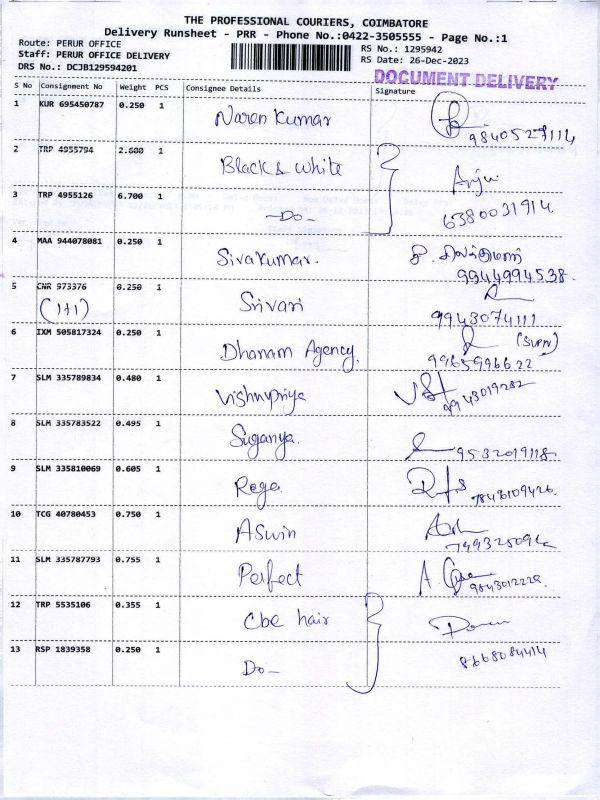 THE PROFESSIONAL COURIERS, COIMBATORE
Delivery Runsheet - PRR - Phone No.:0422-3505555 - Page No.:1
Route: PERUR OFFICE RS No.: 1295942
Staff: PERUR OFFICE DELIVERY RS Date: 26-Dec-2023
DRS No.: DCJB129594201 DOCUMENT DELIVERY
S No Consignment No Weight PCS Consignee Details Signature
1 KUR 695450787 0.250 1 Naren Kumar
9840527114
2 TRP 4955794 2.600 1 Black & White Arju
3 TRP 4955126 6.700 1 -Do- 6380031914
4 MAA 944078081 0.250 1 Sivakumar.
9944994538.
5 CNR 973376 0.250 1 Srivari
(1+1) 9943074111
6 IXM 505817324 0.250 1 Dhanam Agency.
9965996622
7 SLM 335789834 0.480 1 Vishnupriya
9943019282
8 SLM 335783522 0.495 1 Suganya.
9532019118.
9 SLM 335810069 0.605 1 Roga
7843109426.
10 TCG 40780453 0.750 1 Aswin
11 SLM 335787793 0.755 1 Perfect
9843012229.
12 TRP 5535106 0.355 1 Cbe hair
13 RSP 1839358 0.250 1 Do- 8668084414